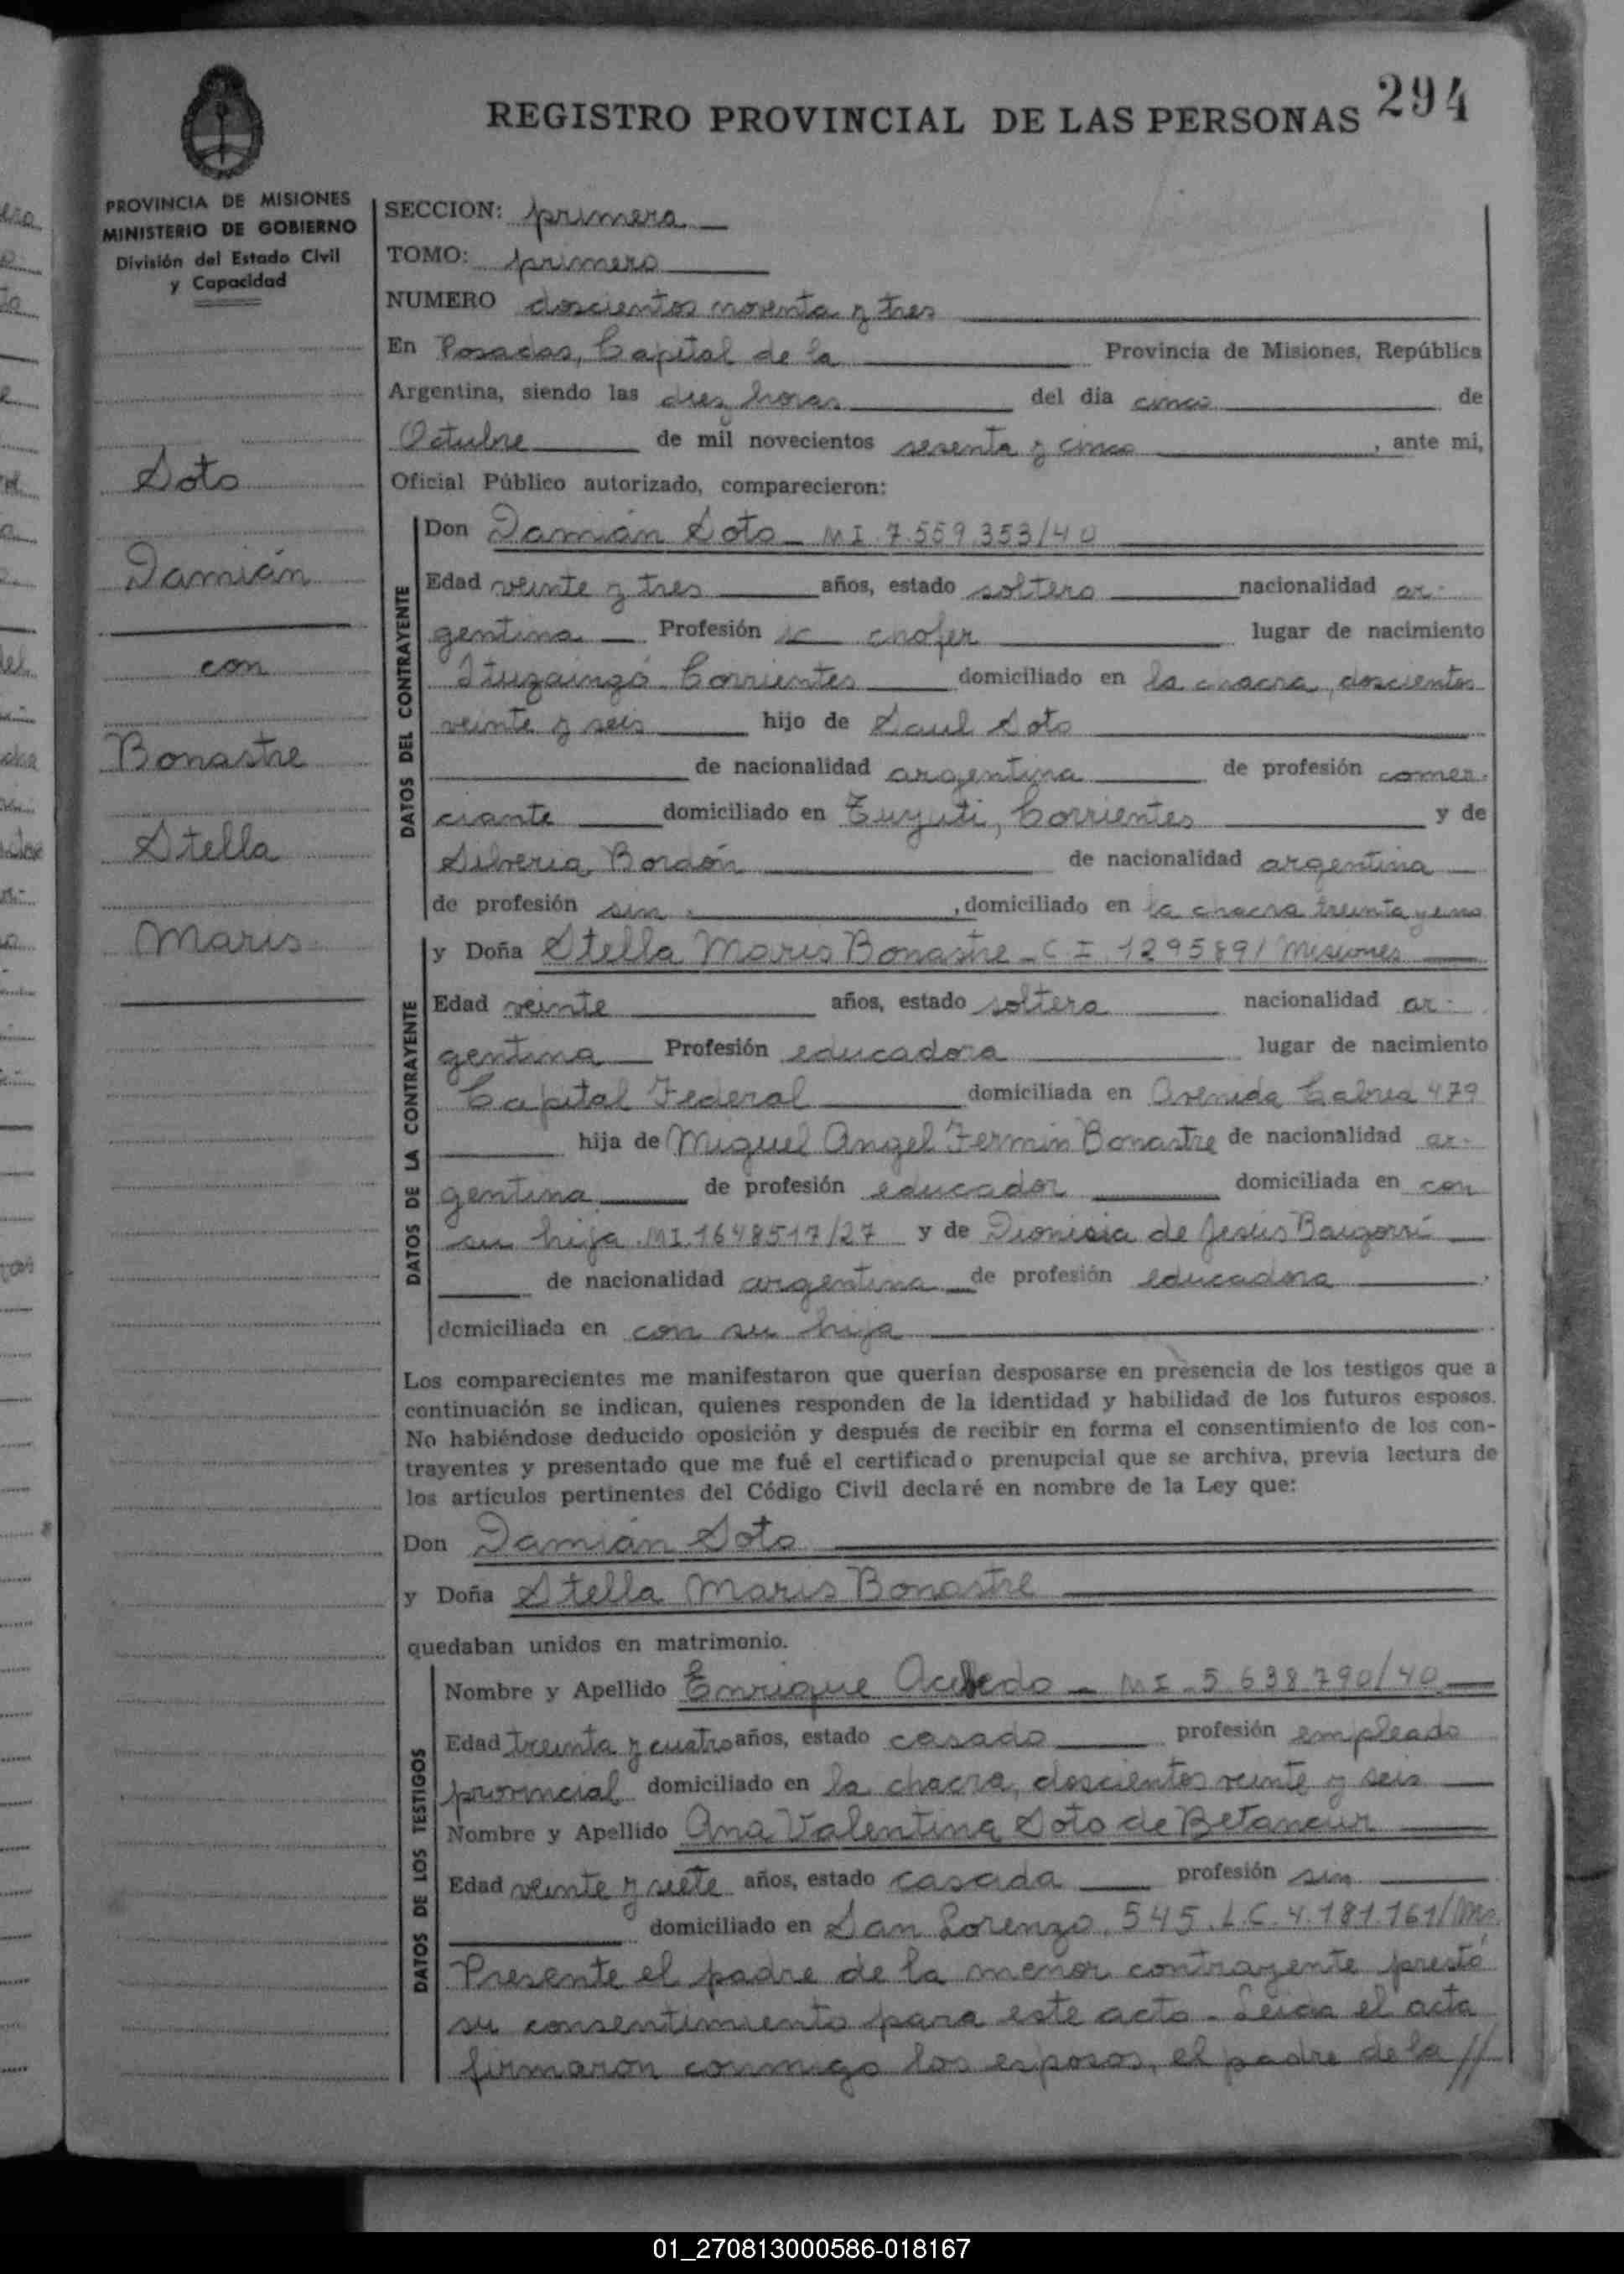 REGISTRO PROVINCIAL DE LAS PERSONAS 294
PROVINCIA DE MISIONES
MINISTERIO DE GOBIERNO
División del Estado Civil
y Capacidad
Soto
Damián
con
Bonastre
Stella
Maris
SECCION: primera
TOMO: primero
NUMERO doscientos noventa y tres
En Posadas, Capital de la Provincia de Misiones, República
Argentina, siendo las diez horas del dia cinco de
Octubre de mil novecientos sesenta y cinco, ante mi,
Oficial Público autorizado, comparecieron:
DATOS DEL CONTRAYENTE
Don Damián Soto - MI 7.559.353/40
Edad veinte y tres años, estado soltero nacionalidad ar-
gentina Profesión chofer lugar de nacimiento
Ituzaingó Corrientes domiciliado en la chacra, doscientos
veinte y seis hijo de Saul Soto
de nacionalidad argentina de profesión comer-
ciante domiciliado en Tuyuti, Corrientes y de
Silveria Bordón de nacionalidad argentina
de profesión sin, domiciliado en la chacra treinta y uno
DATOS DE LA CONTRAYENTE
y Doña Stella Maris Bonastre - C I 129589/ Misiones
Edad veinte años, estado soltera nacionalidad ar-
gentina Profesión educadora lugar de nacimiento
Capital Federal domiciliada en Avenida Cabred 479
hija de Miguel Angel Fermin Bonastre de nacionalidad ar-
gentina de profesión educador domiciliada en con
su hija MI.1648517/27 y de Dionisia de Jesús Baigorrí
de nacionalidad argentina de profesión educadora,
domiciliada en con su hija
Los comparecientes me manifestaron que querían desposarse en presencia de los testigos que a
continuación se indican, quienes responden de la identidad y habilidad de los futuros esposos.
No habiéndose deducido oposición y después de recibir en forma el consentimiento de los con-
trayentes y presentado que me fué el certificado prenupcial que se archiva, previa lectura de
los artículos pertinentes del Código Civil declaré en nombre de la Ley que:
Don Damián Soto
y Doña Stella Maris Bonastre
quedaban unidos en matrimonio.
DATOS DE LOS TESTIGOS
Nombre y Apellido Enrique Acebedo - MI - 5.638.790/40
Edad treinta y cuatro años, estado casado profesión empleado
provincial domiciliado en la chacra, doscientos veinte y seis
Nombre y Apellido Ana Valentina Soto de Betancur
Edad veinte y siete años, estado casada profesión sin
domiciliado en San Lorenzo, 545. L.C. 4.181.161/Ms.
Presente el padre de la menor contrayente prestó
su consentimiento para este acto - Leida el acta
firmaron conmigo los esposos, el padre de la //
01_270813000586-018167